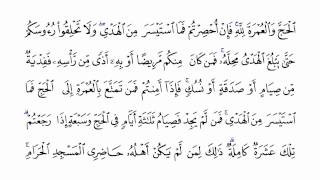 الْحَجَّ وَالْعُمْرَةَ لِلَّهِ ۚ فَإِنْ أُحْصِرْتُمْ فَمَا اسْتَيْسَرَ مِنَ الْهَدْيِ ۖ وَلَا تَحْلِقُوا رُءُوسَكُمْ
حَتَّىٰ يَبْلُغَ الْهَدْيُ مَحِلَّهُ ۚ فَمَن كَانَ مِنكُم مَّرِيضًا أَوْ بِهِ أَذًى مِّن رَّأْسِهِ فَفِدْيَةٌ
مِّن صِيَامٍ أَوْ صَدَقَةٍ أَوْ نُسُكٍ ۚ فَإِذَا أَمِنتُمْ فَمَن تَمَتَّعَ بِالْعُمْرَةِ إِلَى الْحَجِّ فَمَا
اسْتَيْسَرَ مِنَ الْهَدْيِ ۚ فَمَن لَّمْ يَجِدْ فَصِيَامُ ثَلَاثَةِ أَيَّامٍ فِي الْحَجِّ وَسَبْعَةٍ إِذَا رَجَعْتُمْ ۗ
تِلْكَ عَشَرَةٌ كَامِلَةٌ ۗ ذَٰلِكَ لِمَن لَّمْ يَكُنْ أَهْلُهُ حَاضِرِي الْمَسْجِدِ الْحَرَامِ ۚ